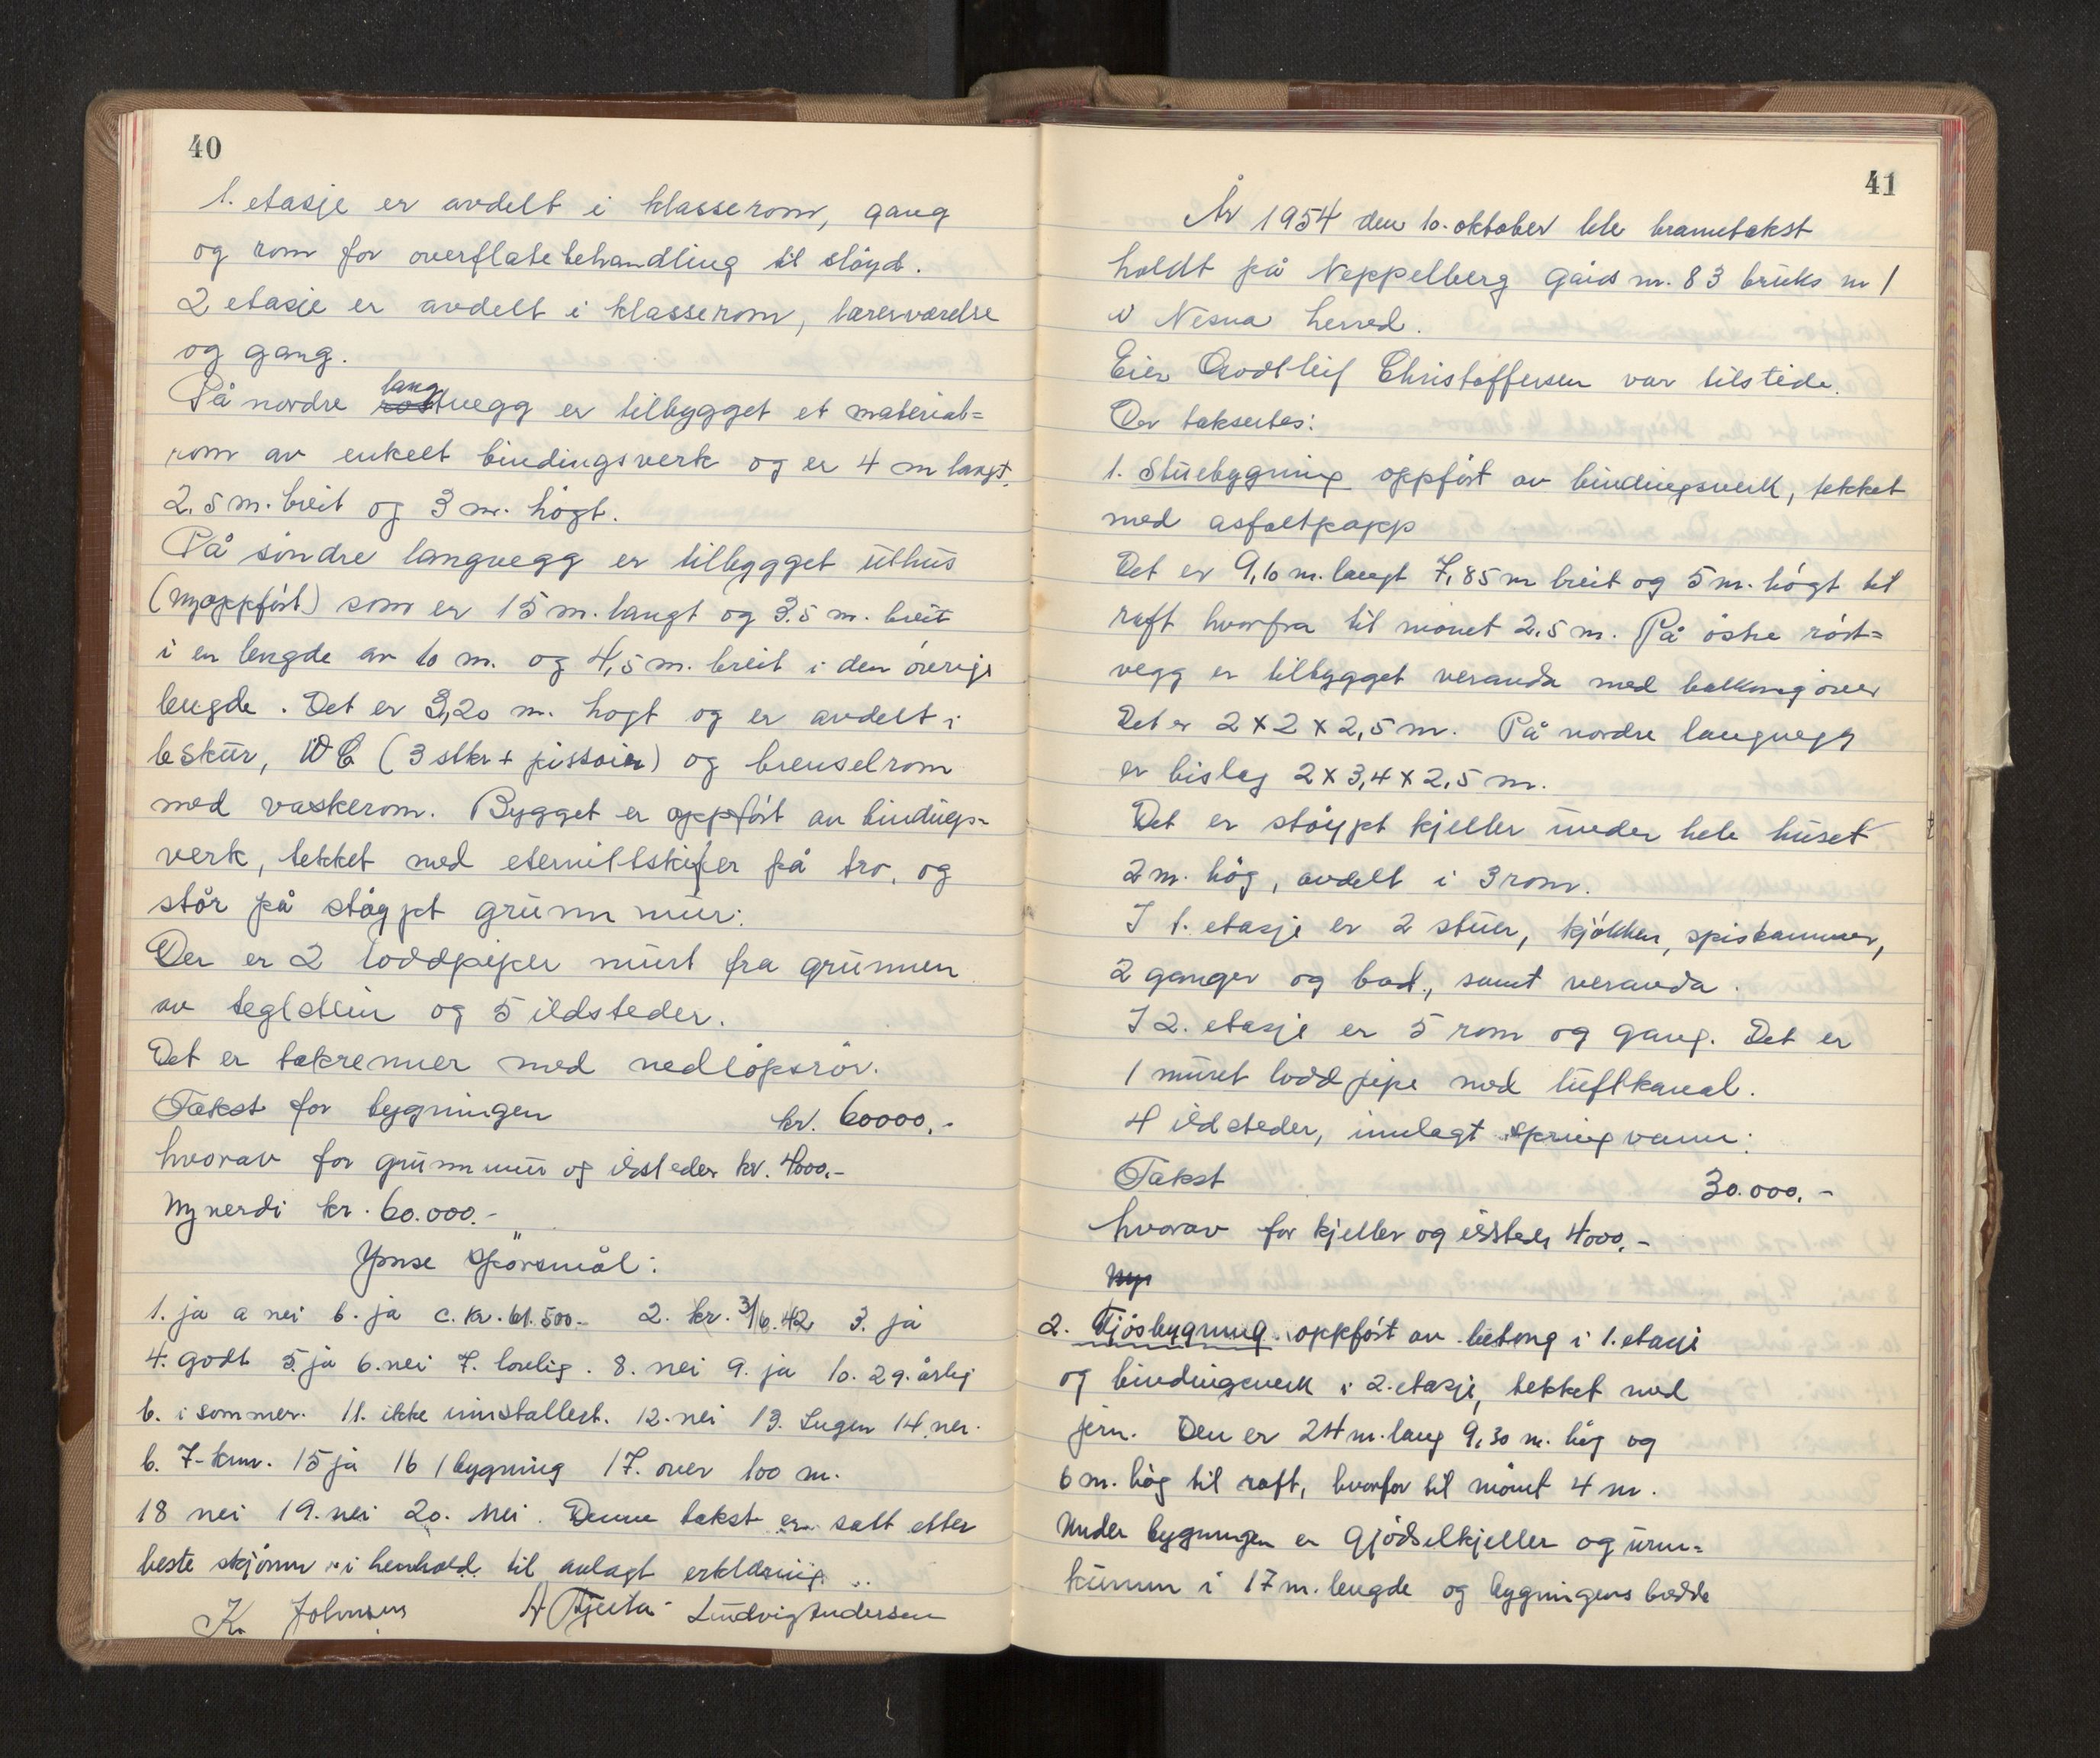 40
1. etasje er avdelt i klasserom, gang
og rom for overflatebehandling til slöyd.
2 etasje er avdelt i klasserom, læreværelse
og gang.
På nordre langvegg er tilbygget et material=
rom av enkelt bindingsverk og er 4 m langt,
2.5 m. breit og 3 m. högt.
På söndre langvegg er tilbygget uthus
(nyoppfört) som er 15 m. langt og 3.5 m. breit
i en lengde av 10 m. og 4,5 m. breit i den överige
lengde. Det er 3,20 m. högt og er avdelt i
leskur, WC (3 stkr + pissoir) og brenselrom
med vaskerom. Bygget er oppfört av bindings-
verk, tekket med eternittskifer på tro, og
står på stöypt grunnmur.
Der er 2 loddpiper murt fra grunnen
av teglstein og 5 ildsteder.
Det er takrenner med nedlöpsrör.
Takst for bygningen kr. 60000.-
hvorav for grunnmur og ildsteder kr. 4000.-
Nyverdi kr. 60.000.-
Ymse spörsmål:
1. ja a nei b. ja c. kr. 61.500.- 2. kr. 3/6.42 3. ja
4. godt 5. ja 6. nei 7. lovlig. 8. nei 9. ja 10. 2 g. årlig
b. i sommer. 11. ikke innstallert. 12. nei 13. Ingen 14. nei.
b. 7-km. 15 ja 16 1 bygning 17. over 100 m.
18 nei 19. nei 20. Nei. Denne takst er satt etter
beste skjönn i henhold til avlagt erklæring.
K. Johnsen Ludvig Andersen
41
År 1954 den 10. oktober ble branntakst
holdt på Neppelberg gårds nr. 83 bruks nr 1
i Nesna herred.
Eier Godtleif Christoffersen var tilstede.
Der taksertes:
1. Stuebygning oppfört av bindingsverk, tekket
med asfaltpapp
Det er 9,10 m. langt 7,85 m breit og 5 m. högt til
raft hvorfra til mönet 2.5 m. På östre röst=
vegg er tilbygget veranda med balkong över
Det er 2 x 2 x 2,5 m. På nordre langvegg
er bislag 2 x 3,4 x 2,5 m.
Det er stöypt kjeller under hele huset
2 m. hög, avdelt i 3 rom.
I 1. etasje er 2 stuer, kjökken, spiskammer,
2 ganger og bad, samt veranda.
I 2. etasje er 5 rom og gang. Det er
1 muret loddpipe med luftkanal.
4 ildsteder, innlagt springvann.
Takst 30.000.-
hvorav for kjeller og ildsteder 4000.-
Ny
2. Fjösbygning oppfört av betong i 1. etasje
og bindingsverk i 2. etasje, tekket med
jern. Den er 24 m. lang 9,30 m. hög og
6 m. hög til raft, hvorfor til mönet 4 m.
Under bygningen er gjödselkjeller og urin-
kumm i 17 m. lengde og bygningens bredde